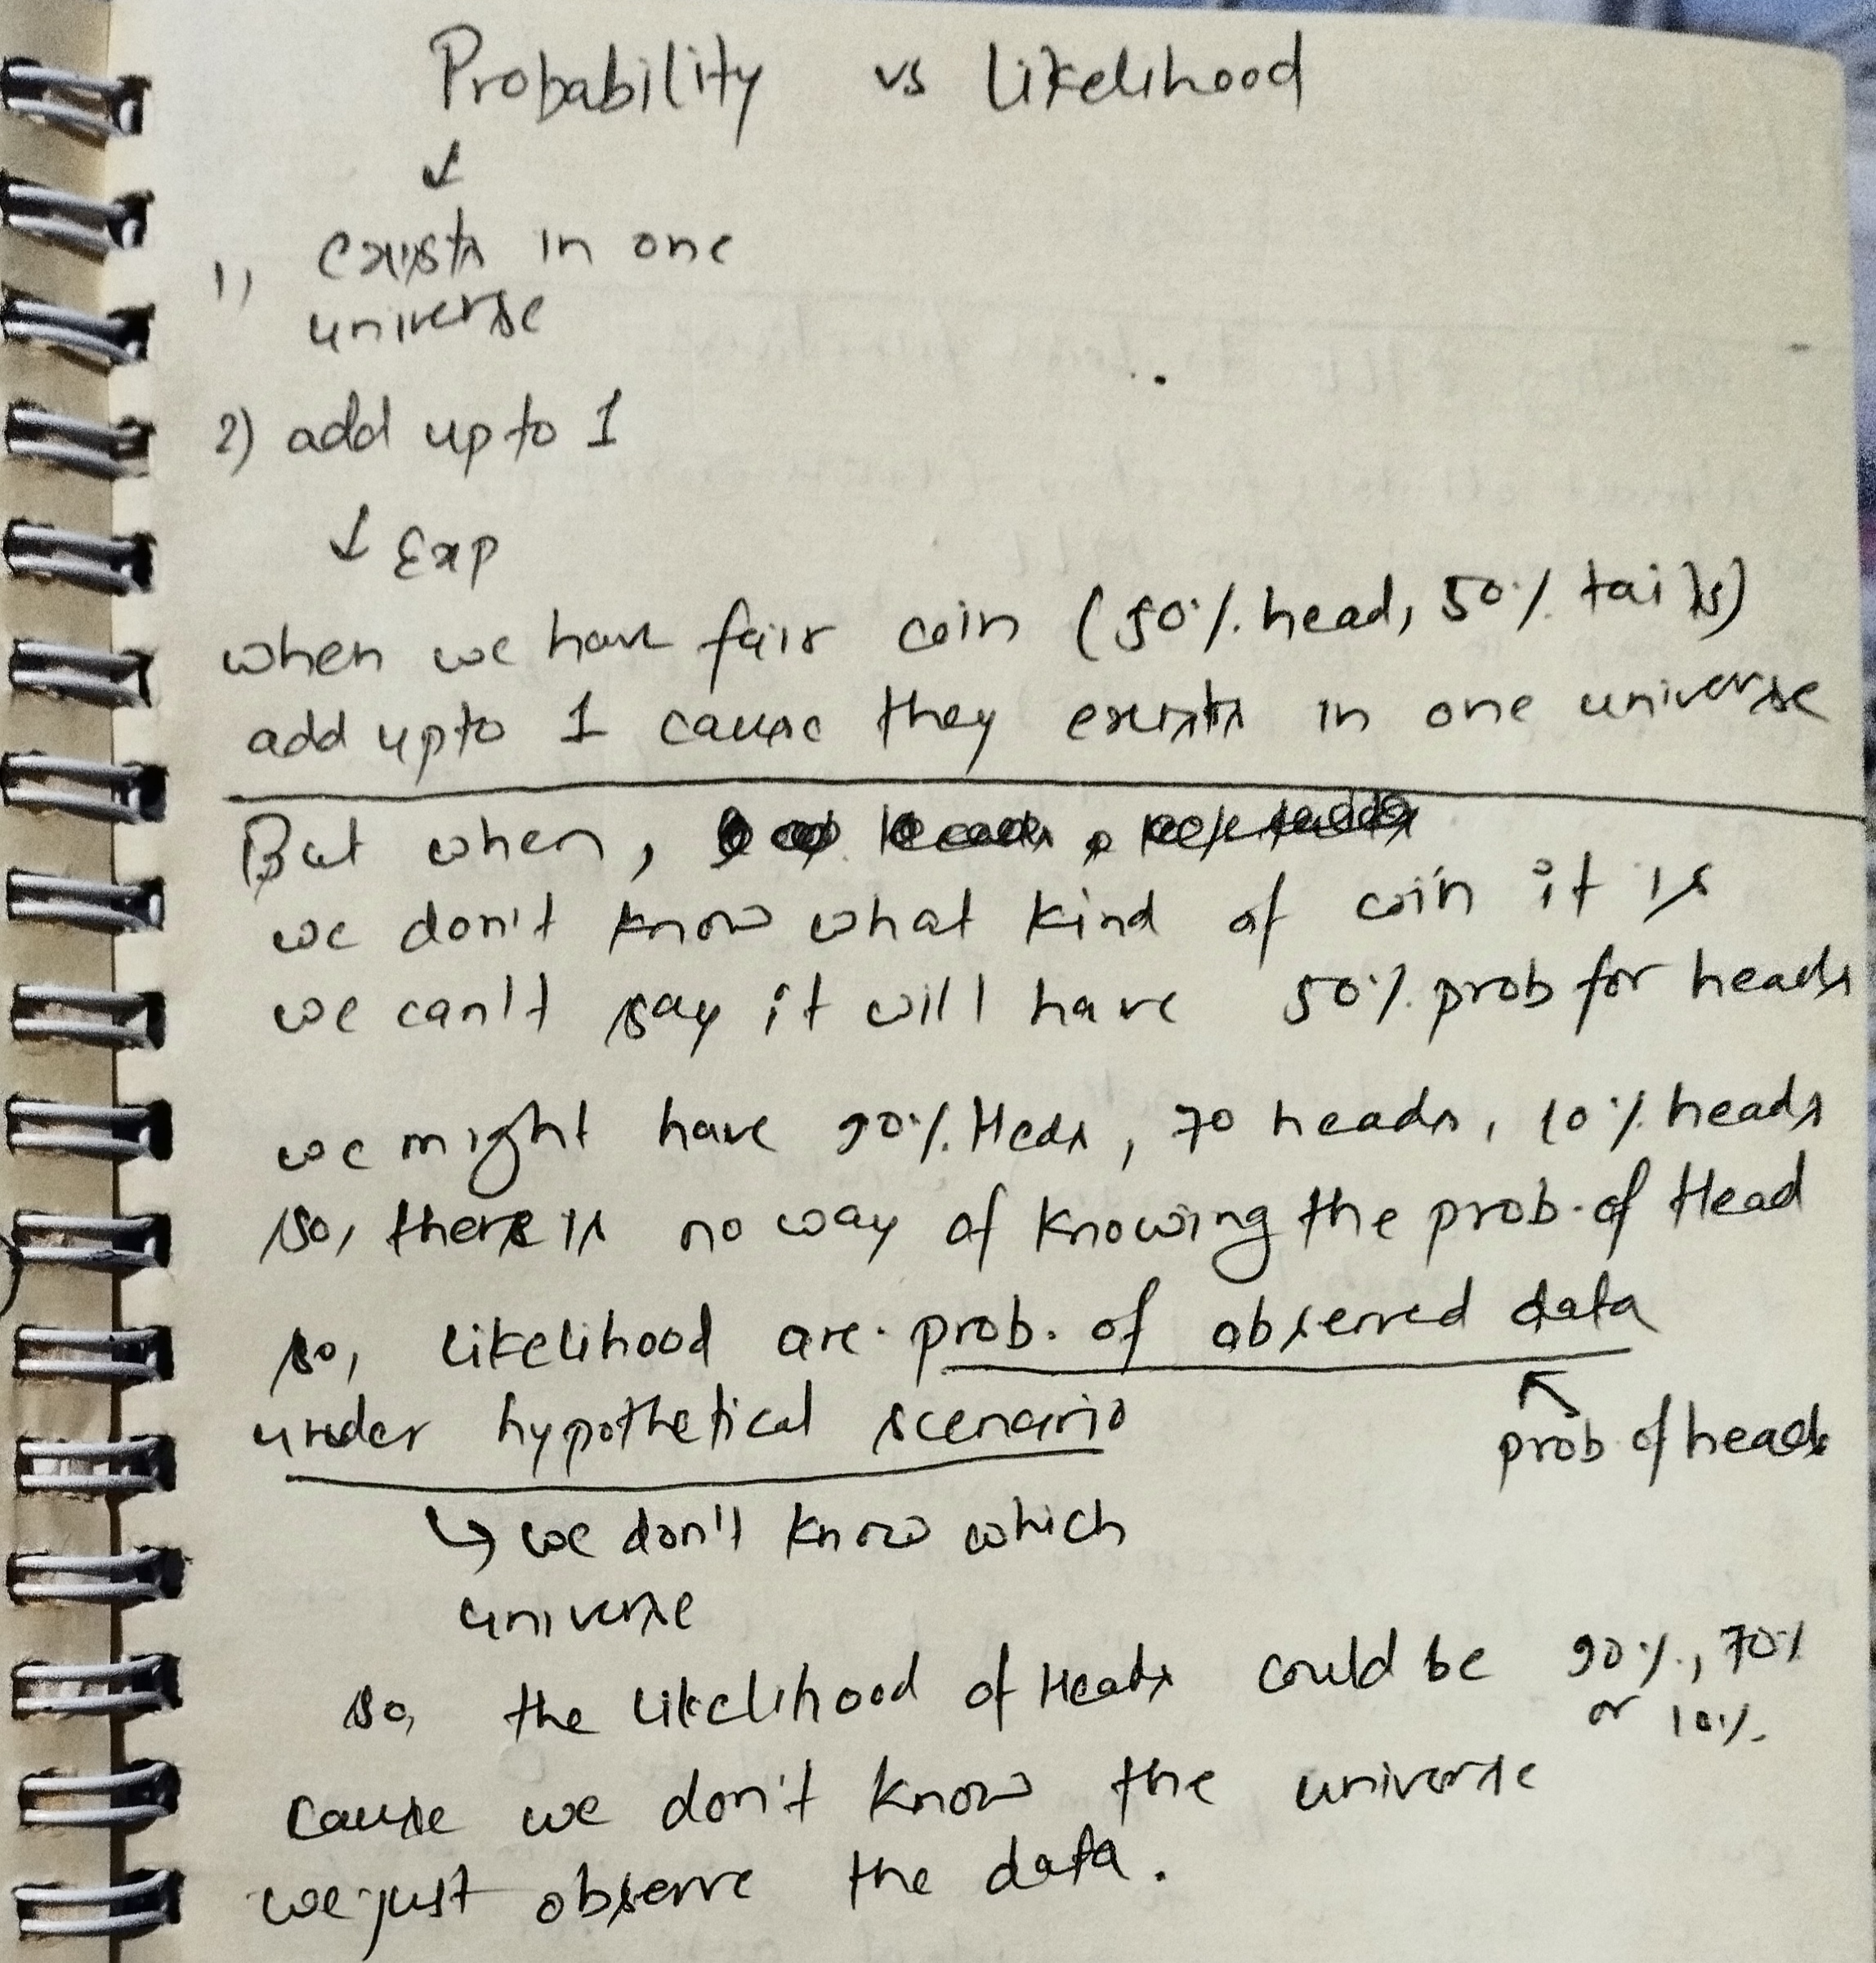 Probability vs Likelihood
1) exists in one
universe
2) add up to 1
Exp
when we have fair coin (50% head, 50% tails)
add up to 1 cause they exists in one universe
But when,
we don't know what kind of coin it is
we can't say it will have 50% prob for heads
we might have 90% Heds, 70 heads, 10% heads
so, there is no way of knowing the prob. of Head
so, likelihood are prob. of observed data
under hypothetical scenario
prob of heads
we don't know which
universe
so, the likelihood of Heads could be 90%, 70%
or 10%.
cause we don't know the universe
we just observe the data.